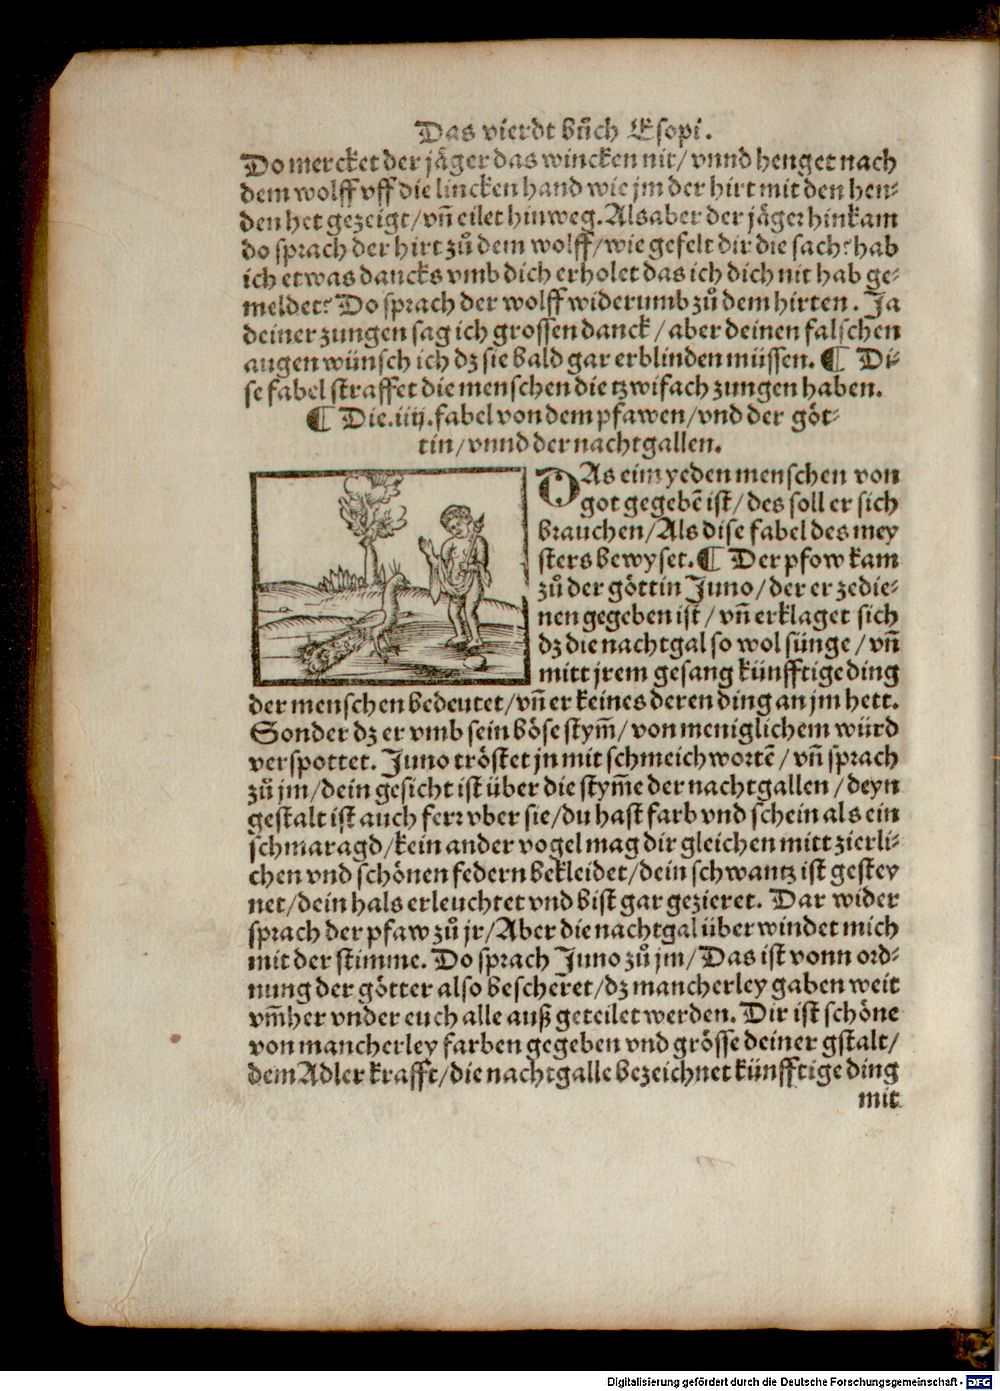 Das vierdt bůch Esopi.
Do mercket der jäger das wincken nit/ vnnd henget nach
dem wolff vff die lincken hand wie jm der hirt mit den hen⸗
den het gezeigt/ vn̄ eilet hinweg. Als aber der jäger hinkam
do sprach der hirt zů dem wolff/ wie gefelt dir die sach? hab
ich etwas dancks vmb dich erholet das ich dich nit hab ge⸗
meldet? Do sprach der wolff widerumb zů dem hirten. Ja
deiner zungen sag ich grossen danck/ aber deinen falschen
augen wünsch ich dz sie bald gar erblinden müssen. ¶ Di⸗
se fabel straffet die menschen die tzwifach zungen haben.
¶ Die .iiij. fabel von dem pfawen/ vnd der göt⸗
tin/ vnnd der nachtgallen.
DAs eim yeden menschen von
got gegebē ist/ des soll er sich
brauchen/ Als dise fabel des mey
sters bewyset. ¶ Der pfow kam
zů der göttin Juno/ der er ze die⸗
nen gegeben ist/ vn̄ erklaget sich
dz die nachtgal so wol sünge/ vn̄
mitt jrem gesang künfftige ding
der menschen bedeutet/ vn̄ er keines deren ding an jm hett.
Sonder dz er vmb sein böse stym̄/ von meniglichem würd
verspottet. Juno tröstet jn mit schmeich wortē/ vn̄ sprach
zů jm/ dein gesicht ist über die stym̄e der nachtgallen/ deyn
gestalt ist auch ferr vber sie/ du hast farb vnd schein als ein
schmaragd/ kein ander vogel mag dir gleichen mitt zierli⸗
chen vnd schönen federn bekleidet/ dein schwantz ist gestey
net/ dein hals erleuchtet vnd bist gar gezieret. Dar wider
sprach der pfaw zů jr/ Aber die nachtgal über windet mich
mit der stimme. Do sprach Juno zů jm/ Das ist vonn ord⸗
nung der götter also bescheret/ dz mancherley gaben weit
vm̄her vnder euch alle auß geteilet werden. Dir ist schöne
von mancherley farben gegeben vnd grösse deiner gstalt/
dem Adler krafft/ die nachtgalle bezeichnet künfftige ding
mit
Digitalisierung gefördert durch die Deutsche Forschungsgemeinschaft - DFG